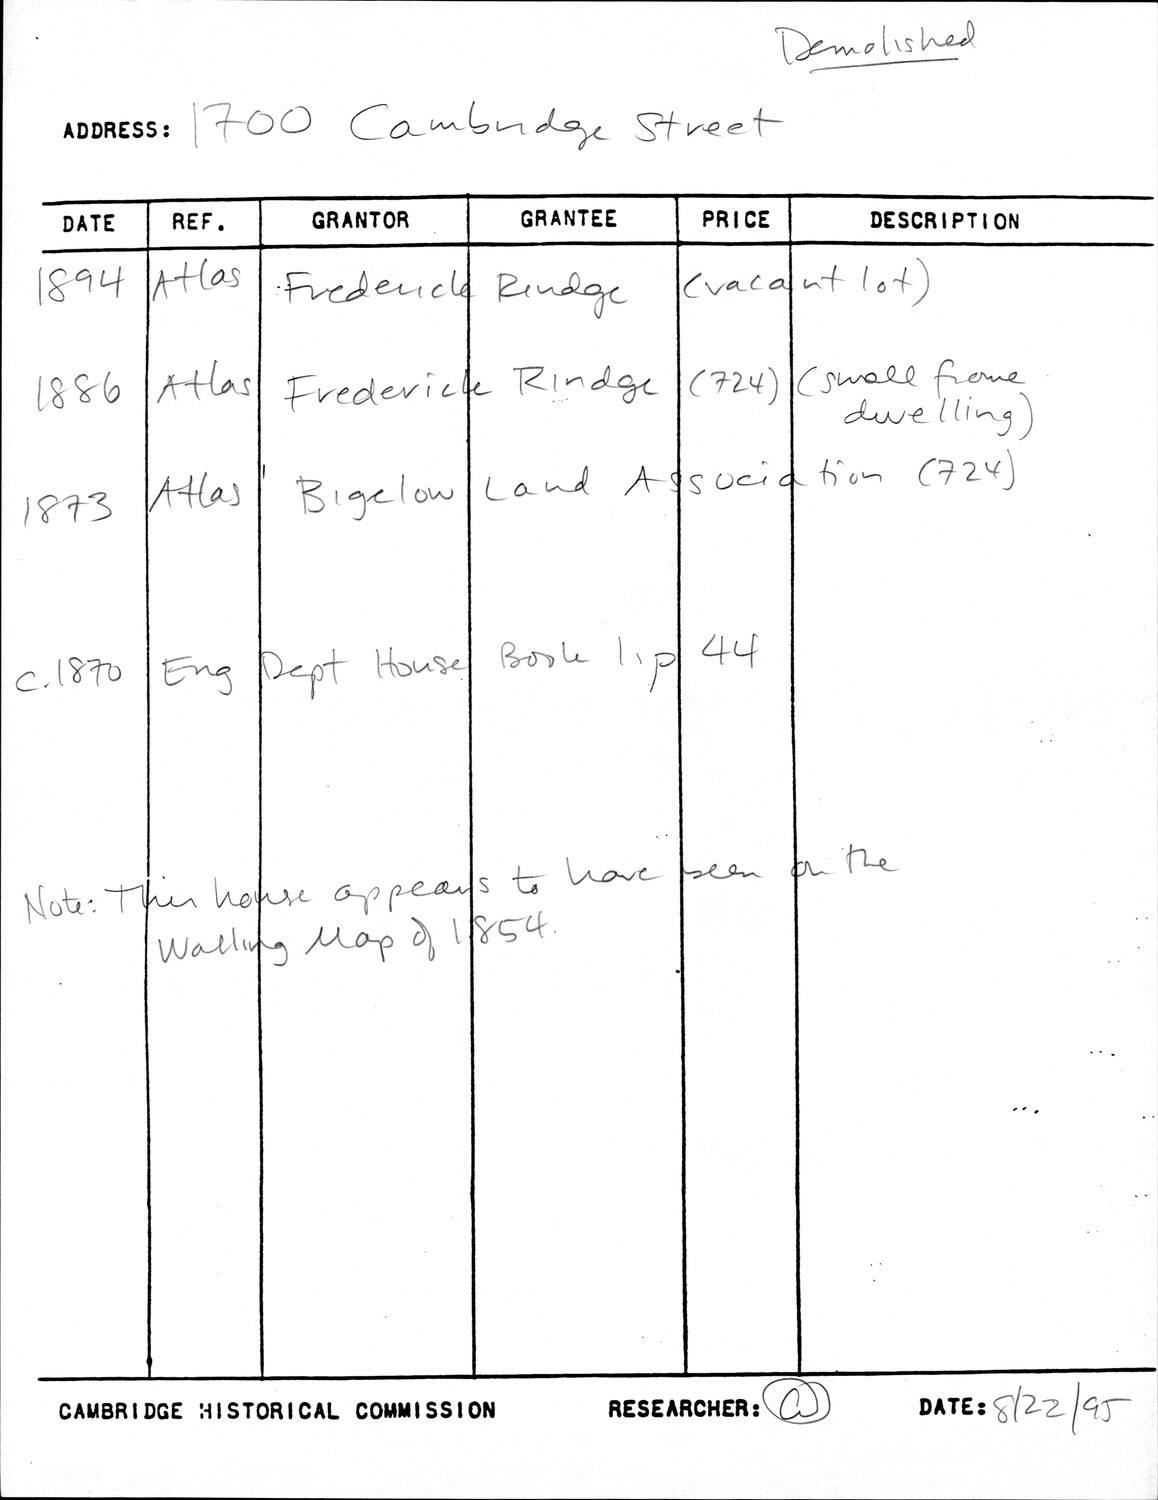 Demolished
ADDRESS: 1700 Cambridge Street
DATE REF. GRANTOR GRANTEE PRICE DESCRIPTION
1894 Atlas Frederick Rindge (vacant lot)
1886 Atlas Frederick Rindge (724) (small frame
dwelling)
1873 Atlas Bigelow Land Association (724)
c.1870 Eng Dept House Book 1, p 44
Note: This house appears to have been on the
Walling Map of 1854.
CAMBRIDGE HISTORICAL COMMISSION RESEARCHER: DATE: 8/22/95